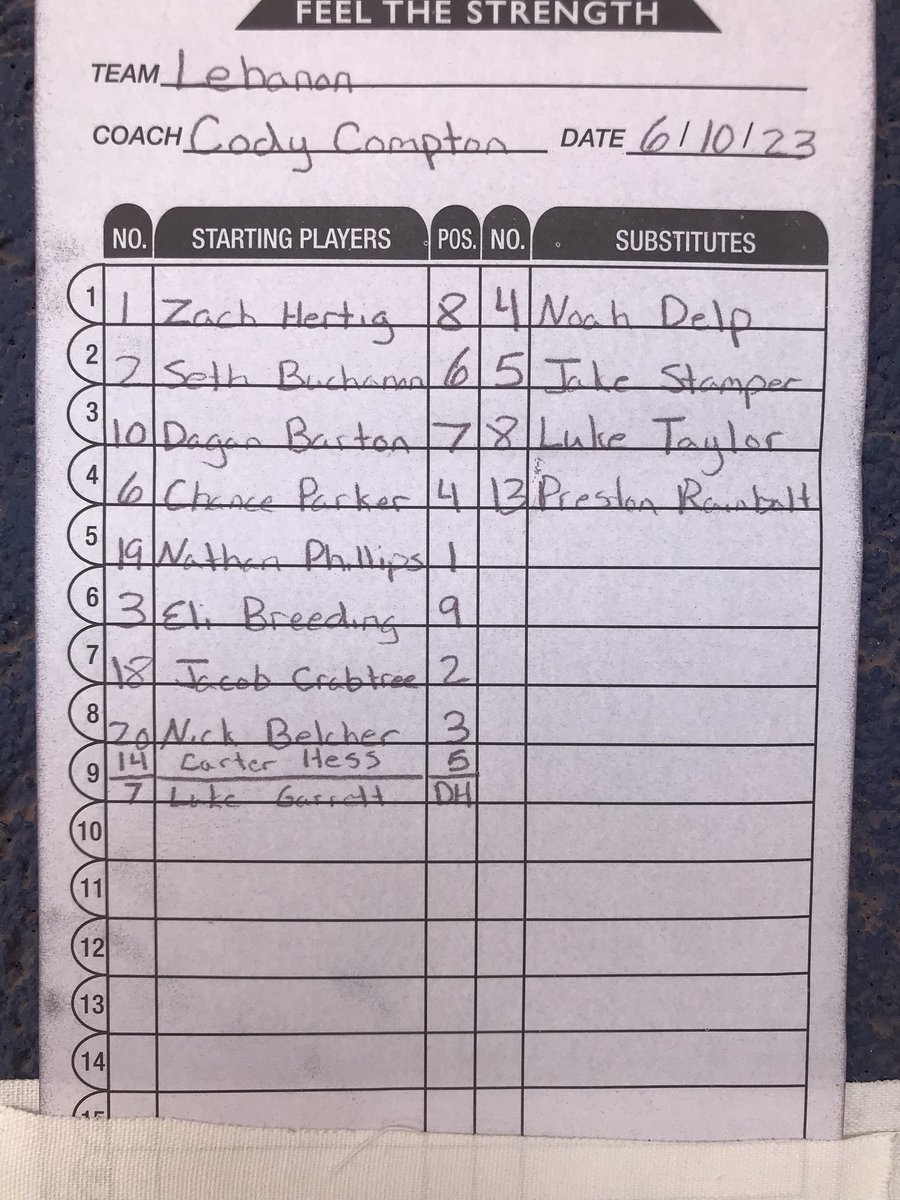 FEEL THE STRENGTH
TEAM Lebanon
COACH Cody Compton DATE 6/10/23
NO. STARTING PLAYERS POS. NO. SUBSTITUTES
1 1 Zach Hertig 8 4 Noah Delp
2 2 Seth Buchanon 6 5 Jake Stamper
3 10 Dagan Barton 7 8 Luke Taylor
4 6 Chance Parker 4 13 Preston Rainbolt
5 19 Nathan Phillips 1
6 3 Eli Breeding 9
7 18 Jacob Crabtree 2
8 20 Nick Belcher 3
9 14 Carter Hess 5
7 Luke Garrett DH
10
11
12
13
14
15